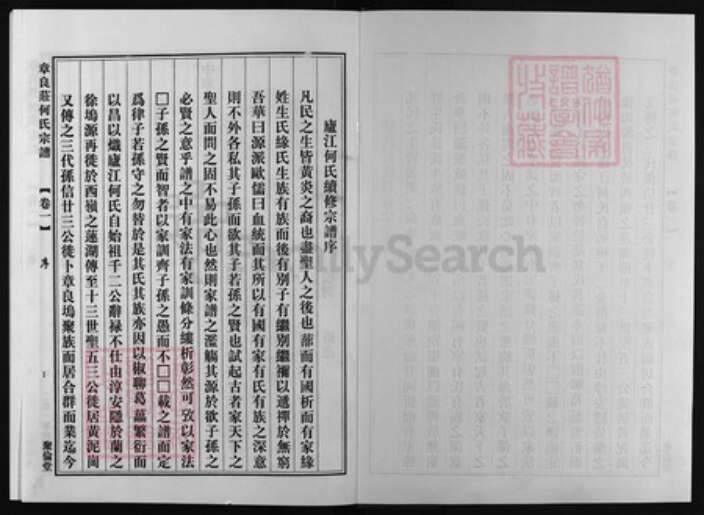 廬江何氏續修宗譜序
凡民之生皆黃炎之裔也盡聖人之後也蔀而有國析而有家緣
姓生氏緣氏生族有族而後有別子有繼別繼禰以遞禪於無窮
吾華曰源派歐儒曰血統而其所以有國有家有氏有族之深意
則不外各私其子孫而欲其子若孫之賢也試起古者家天下之
聖人而問之固不易此心也然則家譜之濫觴其源於欲子孫之
必賢之意乎譜之中有家法有家訓條分縷析彰然可攷以家法
□子孫之賢而智者以家訓齊子孫之愚而不□□載之譜而定
爲律子若孫守之勿替於是其氏其族亦因以椒聊葛藟繁衍而
以昌以熾廬江何氏自始祖千二公辭祿不仕由淳安隱於蘭之
徐塢源再徙於西嶺之蓮湖傳至十三世聖五三公徙居黃泥崗
又傳之三代孫信廿三公徙卜章良塢聚族而居合群而業迄今
章良莊何氏宗譜
【卷一】
序
聚倫堂
FamilySearch